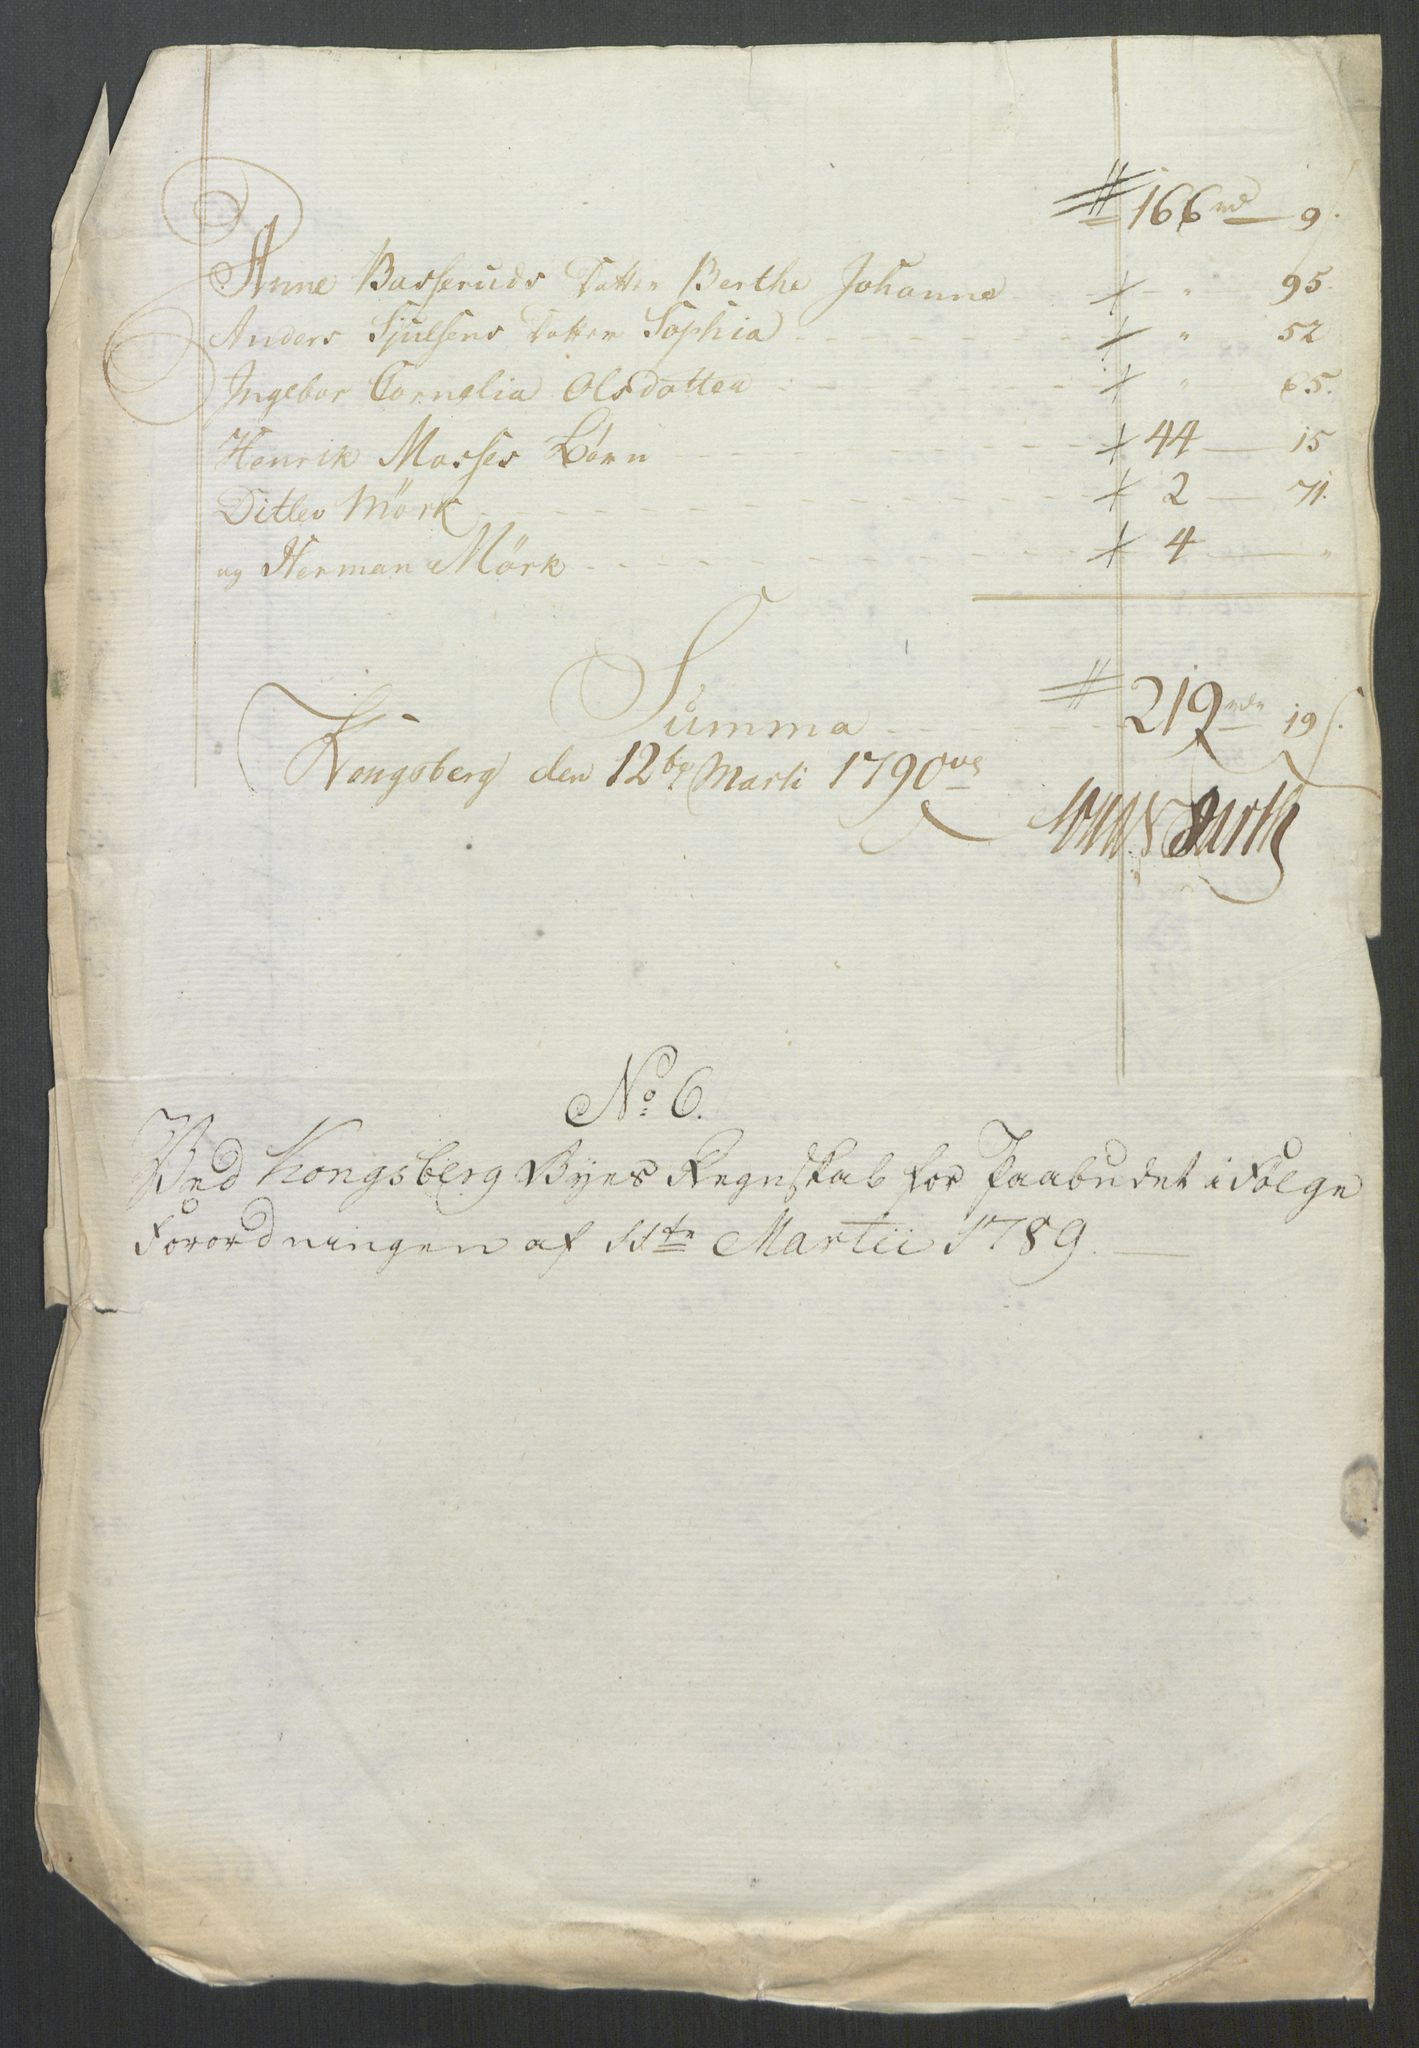 # 166 rd — 9 s.
Anne Basseruds Datter Berthe Johanne — " 95.
Anders Sjulsens Datter Sophia - - - - - " 52
Ingebor Cornelia Olsdatter - - - - " 65.
Henrik Masses Börn - - - - 44 — 15
Ditlev Mörk - - - - - - 2 — 71.
og Herman Mörk - - - - - 4 — "
Summa - - - - # 219 rdr 19 s.
Kongsberg den 12te Marti 1790
No 6.
Ved Kongsberg Byes Regnskab for Paabudet i Følge
Forordningen af 11te Martii 1789. —